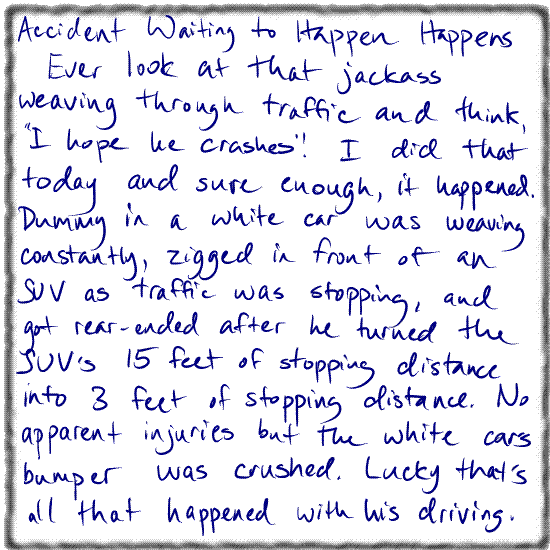 Accident Waiting to Happen Happens
Ever look at that jackass
weaving through traffic and think,
"I hope he crashes"! I did that
today and sure enough, it happened.
Dummy in a white car was weaving
constantly, zigged in front of an
SUV as traffic was stopping, and
got rear-ended after he turned the
SUV's 15 feet of stopping distance
into 3 feet of stopping distance. No
apparent injuries but the white cars
bumper was crushed. Lucky that's
all that happened with his driving.